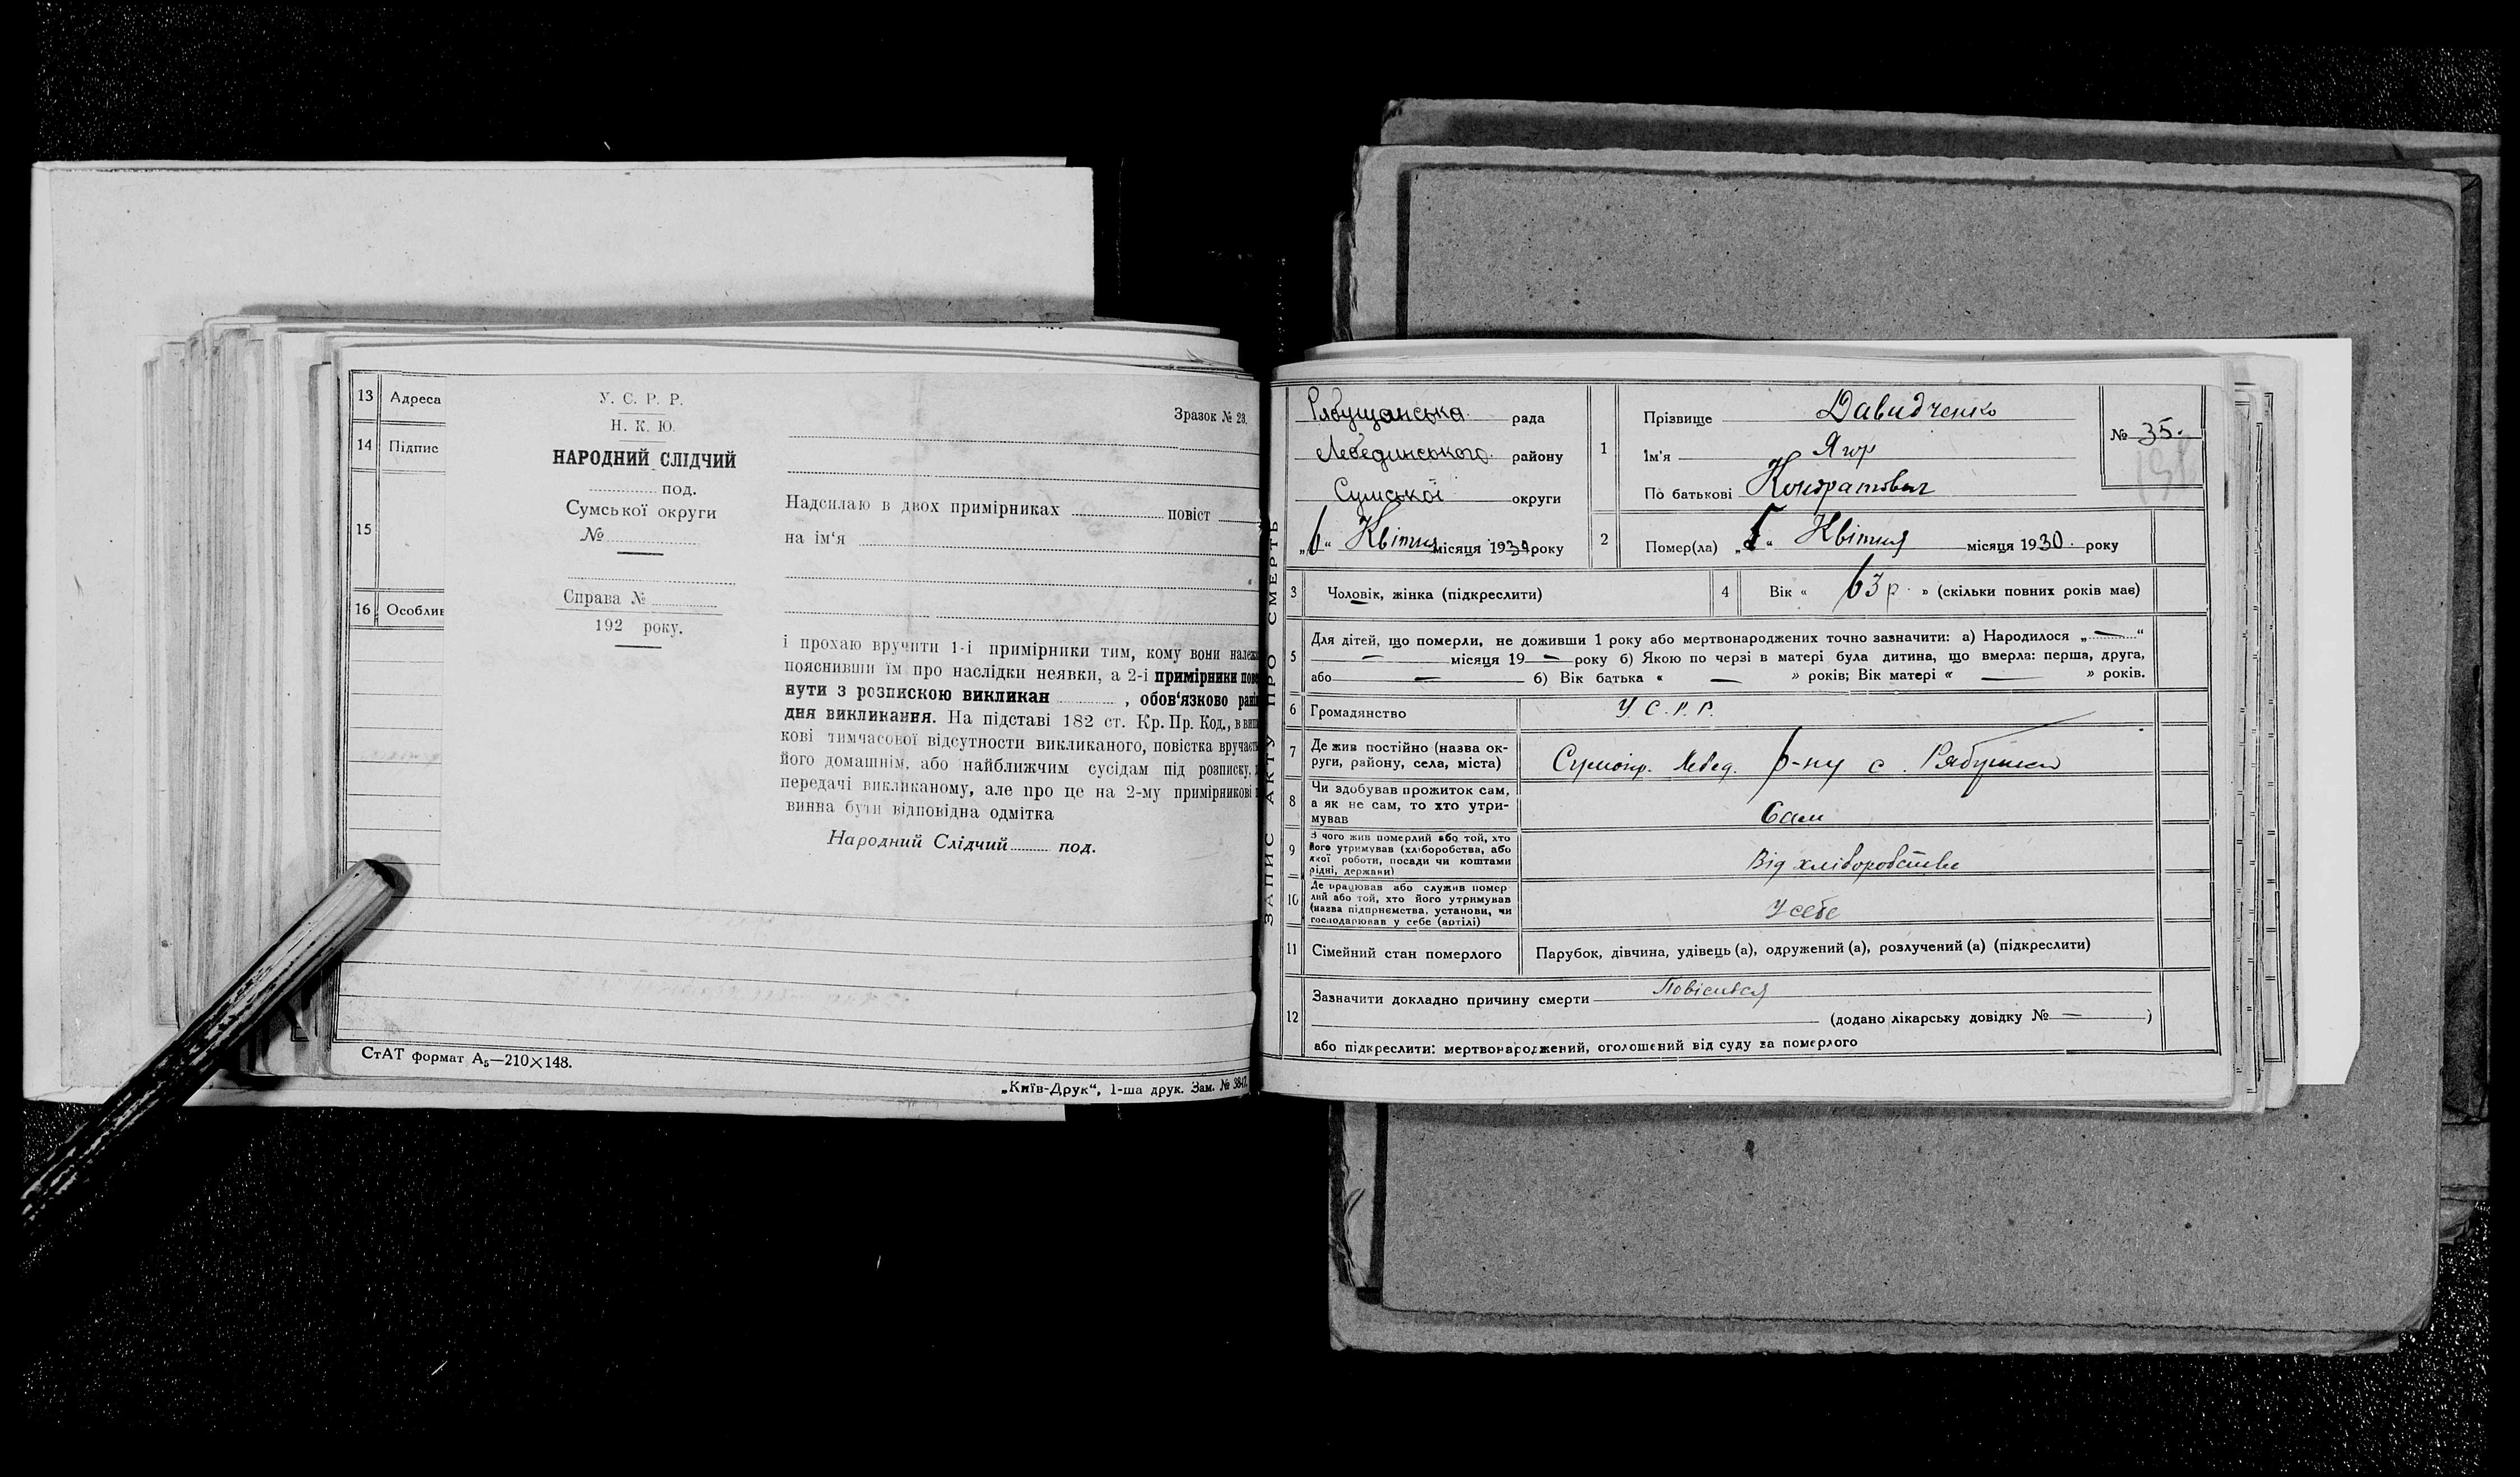 13 Адреса
14 Підпис
15
16 Особлив
У. С. Р. Р.
Н. К. Ю.
НАРОДНИЙ СЛІДЧИЙ
под.
Сумської округи
№
Справа №
192 року.
Зразок № 23.
Надсилаю в двох примірниках повіст
на ім'я
і прохаю вручити 1-і примірники тим, кому вони належ
пояснивши їм про наслідки неявки, а 2-і примірники пове
нути з розпискою викликан , обов'язково рані
дня викликання. На підставі 182 ст. Кр. Пр. Код., в вип
кові тимчасової відсутности викликаного, повістка вручаєт
його домашнім, або найближчим сусідам під розписку,
передачі викликаному, але про це на 2-му примірникові
винна бути відповідна одмітка
Народний Слідчий под.
СтАТ формат А₅—210×148.
„Київ-Друк“, 1-ша друк. Зам. № 3847.
ЗАПИС АКТУ ПРО СМЕРТЬ
Рябущанська рада
Лебединського району
Сумської округи
„6“ Квітня місяця 1930 року
1 Прізвище Давидченко
Ім'я Ягор
По батькові Кондратович
№ 35.
2 Помер(ла) „5“ Квітня місяця 1930. року
3 Чоловік, жінка (підкреслити)
4 Вік « 63 р. » (скільки повних років має)
5 Для дітей, що померли, не доживши 1 року або мертвонароджених точно зазначити: а) Народилося „—“
— місяця 19— року б) Якою по черзі в матері була дитина, що вмерла: перша, друга,
або — б) Вік батька « — » років; Вік матері « — » років.
6 Громадянство У. С. Р. Р.
7 Де жив постійно (назва ок-
руги, району, села, міста) Сумокр. Лебед. р-ну с. Рябушки
8 Чи здобував прожиток сам,
а як не сам, то хто утри-
мував Сам
9 З чого жив померлий або той, хто
його утримував (хліборобства, або
якої роботи, посади чи коштами
рідні, держави) Від хліборобства
10 Де працював або служив помер
лий або той, хто його утримував
(назва підприємства, установи, чи
господарював у себе (артілі) У себе
11 Сімейний стан померлого Парубок, дівчина, удівець (а), одружений (а), розлучений (а) (підкреслити)
12 Зазначити докладно причину смерти Повісився
(додано лікарську довідку № — )
або підкреслити: мертвонароджений, оголошений від суду за померлого